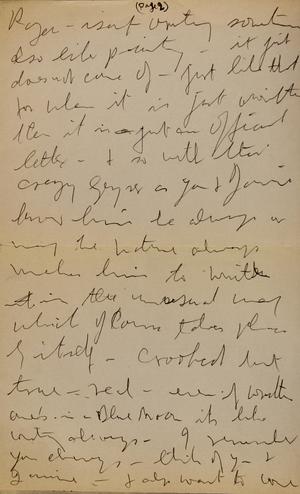 (Page 2)
Roger - isn't writing sometimes
also like painting - it just
does not come off - just like that
for when it is just written
then it is just an official
letter - & so with this
crazy Geyser as you & Jamie
know him he always or
may be nature always
makes him to write
in this unusual way
which of course takes place
by itself - crooked but
true - real - even if written
once in a Blue Moon its like
writing always - I remember
you always - think of you &
Jamie - & also want to